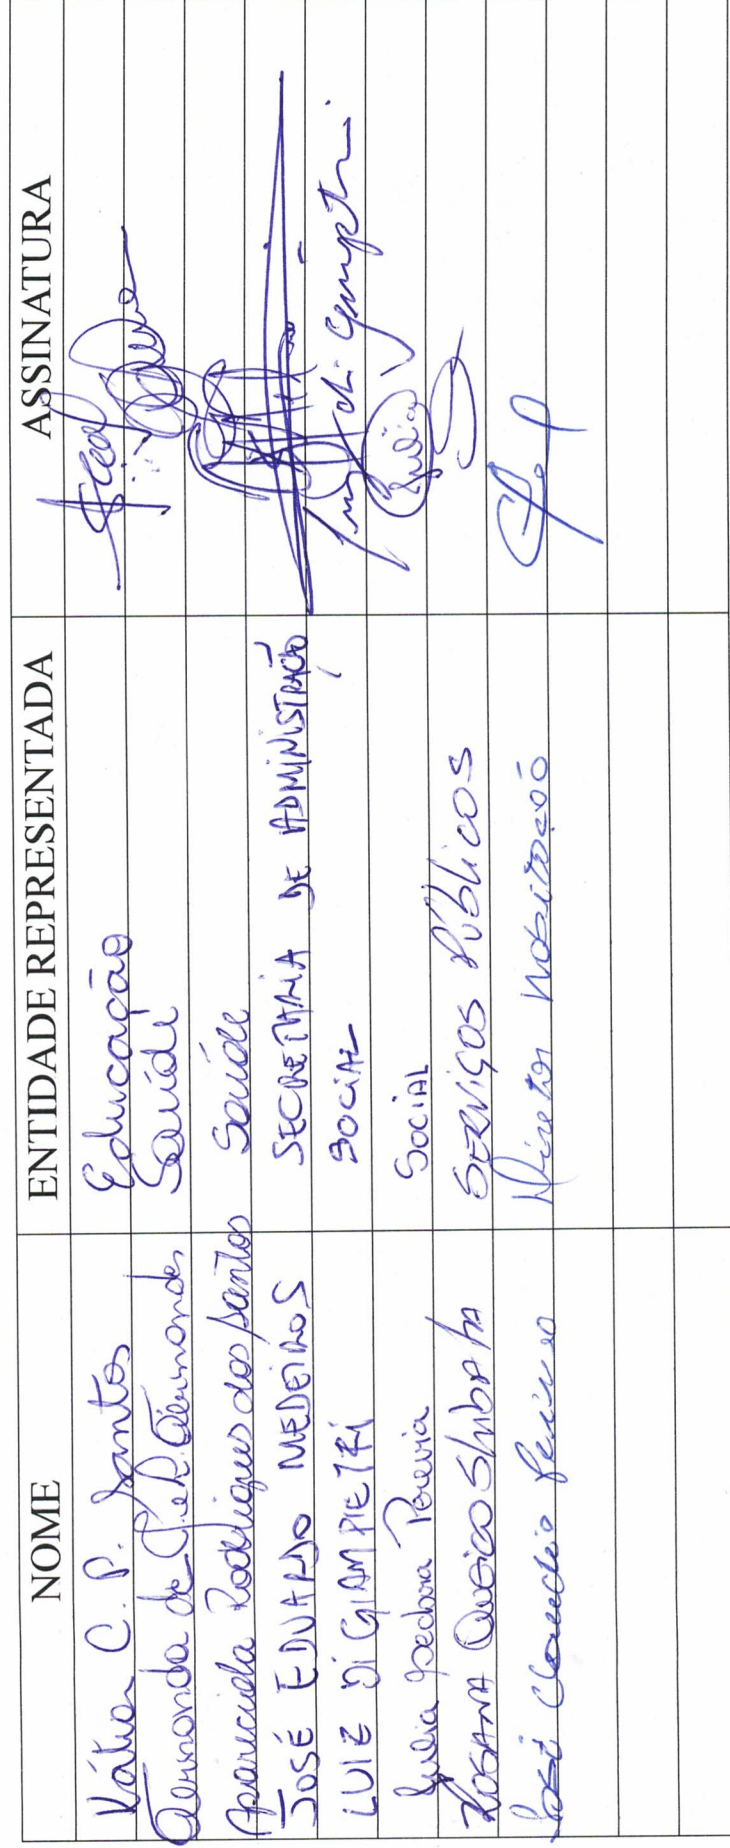 NOME ENTIDADE REPRESENTADA ASSINATURA
Kátia C. P. Santos Educação
Fernanda de Fernandes Saúde
Aparecida Rodrigues dos Santos Saúde
JOSÉ EDUARDO MEDEIROS SECRETARIA DE ADMINISTRAÇÃO
LUIZ DI GIAMPIETRI SOCIAL Luiz di Giampietri
Julia Isadora Pereira Social Julia
ROSANA SHIBATA SERVIÇOS PÚBLICOS
José Claudio Diretor Habitação